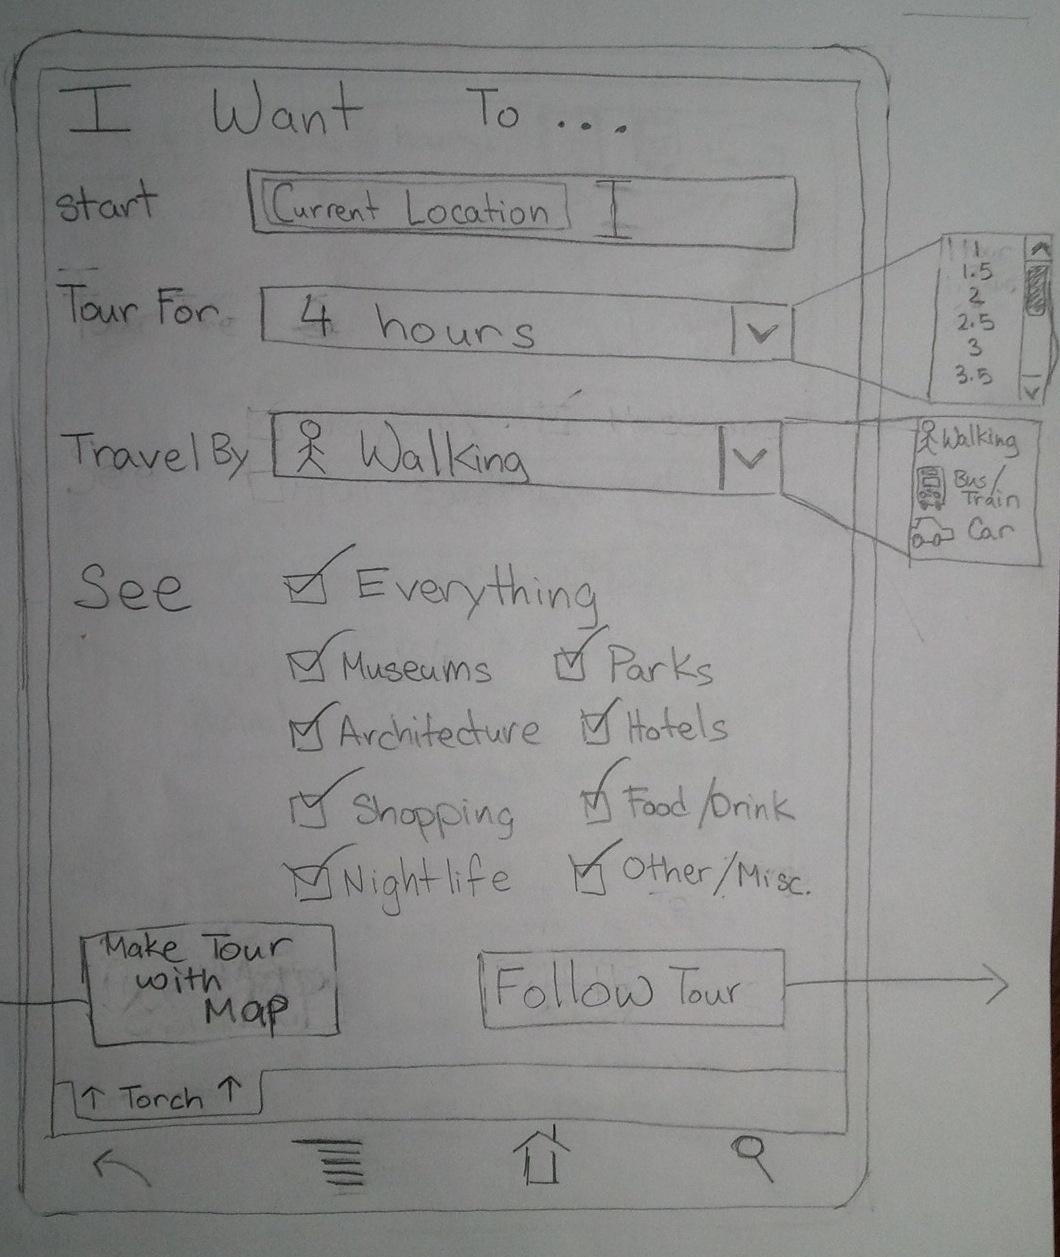 I Want To ...
Start Current Location
Tour For 4 hours
1
1.5
2
2.5
3
3.5
Travel By Walking
Walking
Bus/
Train
Car
See Everything
Museums Parks
Architecture Hotels
Shopping Food/Drink
Nightlife Other/Misc.
Make Tour
with
Map
Follow Tour
↑ Torch ↑